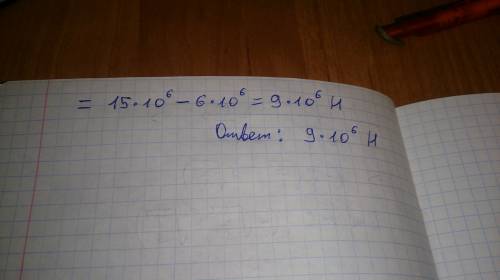 = 15·10⁶ – 6·10⁶ = 9·10⁶ Н
Ответ: 9·10⁶ Н